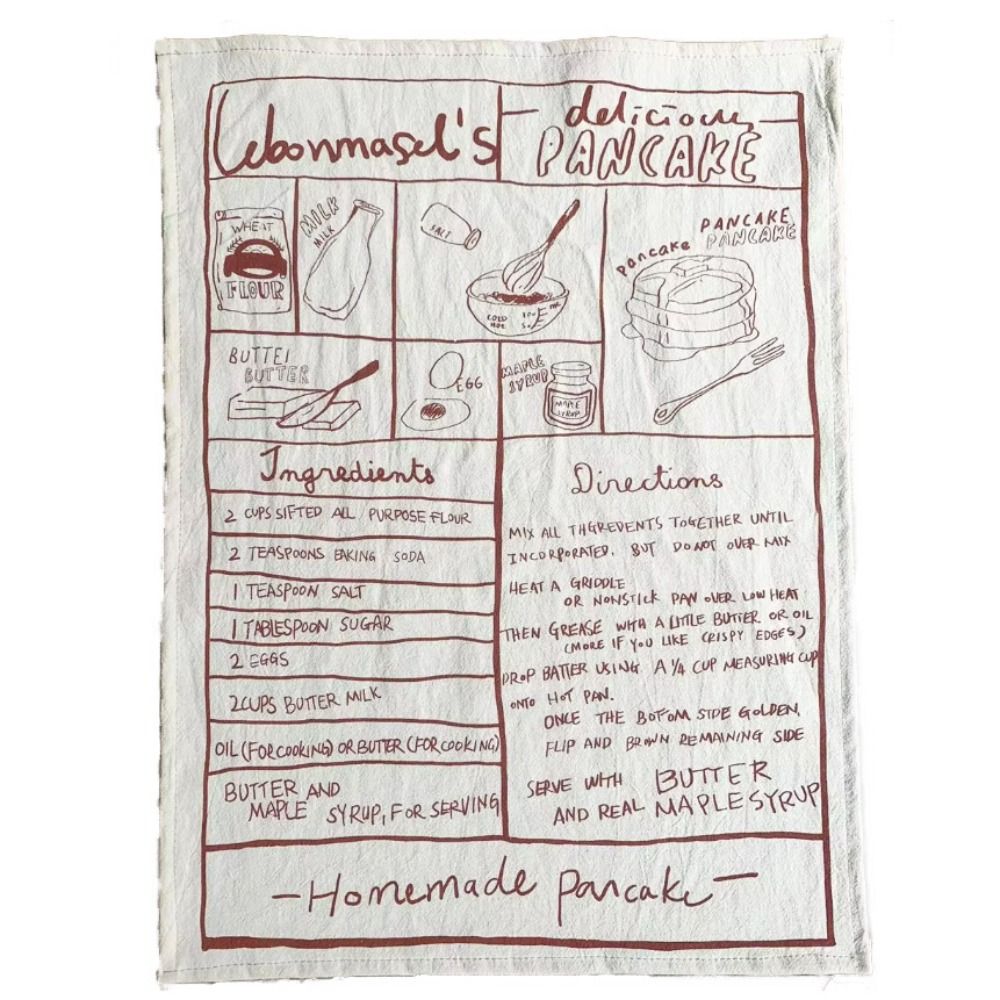 Lebonmasel's
delicious
PANCAKE
WHEAT
FLOUR
MILK
MILK
SALT
COLD
HOT
100
50
PANCAKE
PANCAKE
pancake
BUTTEI
BUTTER
EGG
MAPLE
SYRUP
MAPLE
SYRUP
Ingredients
2 CUPS SIFTED ALL PURPOSE FLOUR
2 TEASPOONS BAKING SODA
1 TEASPOON SALT
1 TABLESPOON SUGAR
2 EGGS
2 CUPS BUTTER MILK
OIL (FOR COOKING) OR BUTTER (FOR COOKING)
BUTTER AND
MAPLE SYRUP, FOR SERVING
Directions
MIX ALL THGREDENTS TOGETHER UNTIL
INCORPORATED. BUT DO NOT OVER MIX
HEAT A GRIDDLE
OR NONSTICK PAN OVER LOW HEAT
THEN GREASE WITH A LITTLE BUTTER OR OIL
(MORE IF YOU LIKE CRISPY EDGES)
DROP BATTER USING A 1/4 CUP MEASURING CUP
ONTO HOT PAN.
ONCE THE BOTTOM SIDE GOLDEN,
FLIP AND BROWN REMAINING SIDE
SERVE WITH BUTTER
AND REAL MAPLE SYRUP
-Homemade pancake-